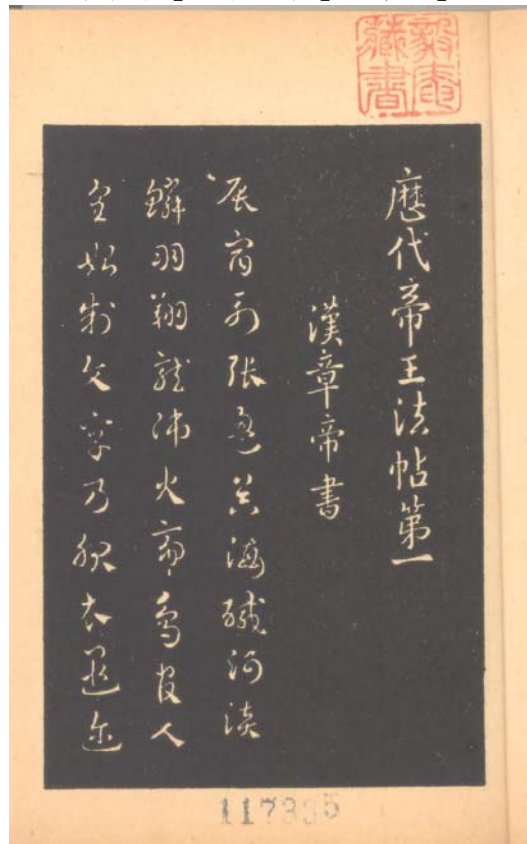 歷代帝王法帖第一
漢章帝書
辰宿列張海醎河淡
鱗羽翔龍師火帝鳥官人
皇始制文字乃服衣遐迩
藏書
117335